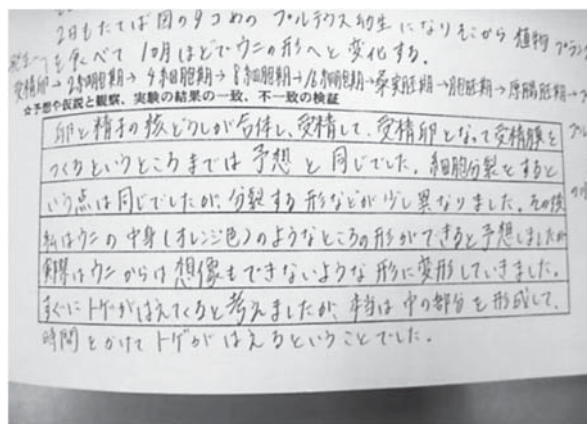 2日もたてば図の9コめの プルテウス幼生になりそこから植物プラン
を食べて 10月ほどでウニの形へと変化する.
受精卵→2細胞胞期→4細胞胞期→8細胞胞期→16細胞胞期→桑実胚期→胞胚期→原腸胚期→
☆予想や仮説と観察、実験の結果の一致、不一致の検証
卵と精子の核どうしが合体し、受精して、受精卵となって受精膜を
つくるというところまでは予想と同じでした。細胞分裂をすると
いう点は同じでしたが、分裂する形などが少し異なりました。その後
私はウニの中身(オレンジ色)のようなところの形ができると予想しましたが
実際はウニからは想像もできないような形に変形していきました。
すぐにトゲがはえてくると考えましたが、本当は中の部分を形成して、
時間をかけてトゲがはえるということでした。